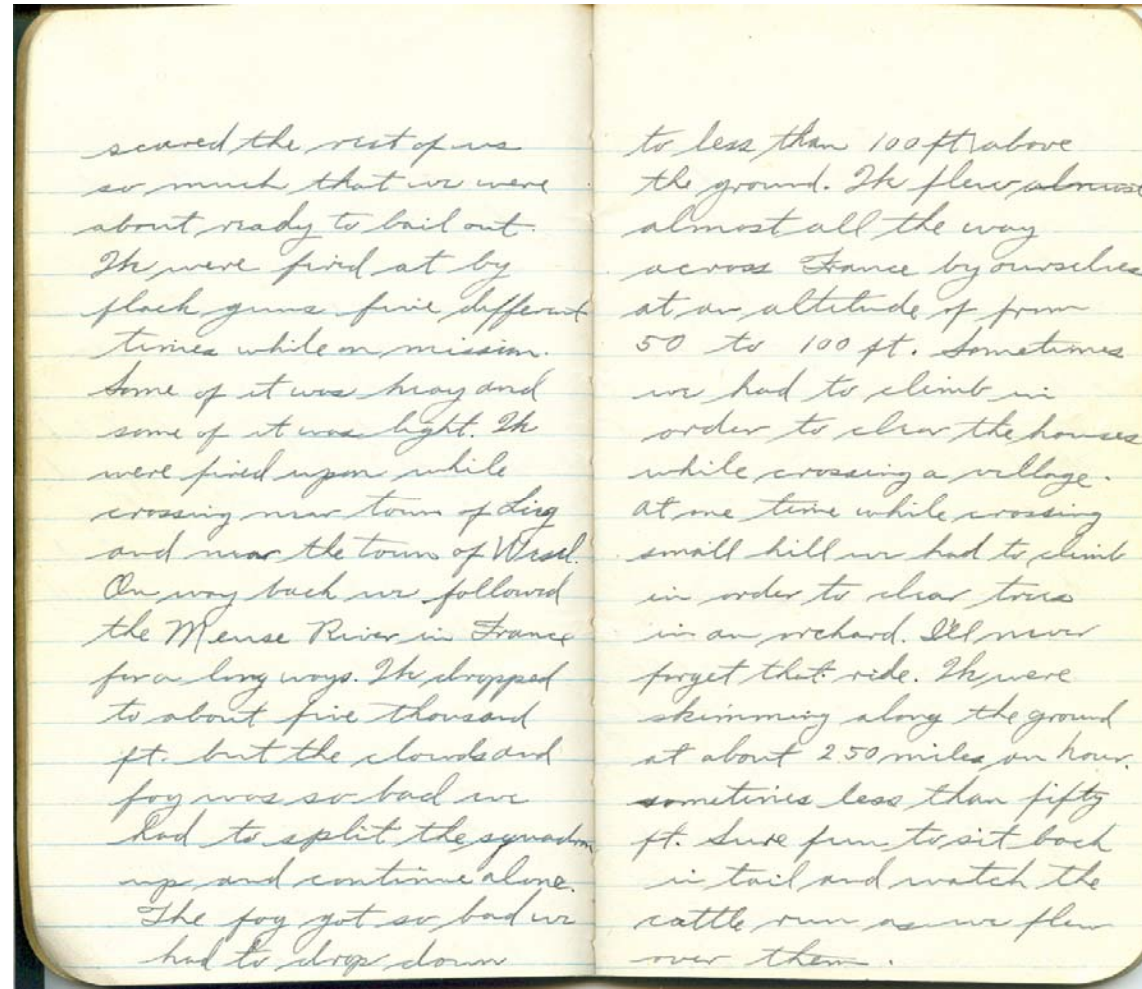 scared the rest of us
so much that we were
about ready to bail out.
We were fired at by
flack guns five different
times while on mission.
Some of it was heay and
some of it was light. We
were fired upon while
crossing near town of Lieg
and near the town of Wesel.
On way back we followed
the Meuse River in France
for a long ways. We dropped
to about five thousand
ft. but the clouds and
fog was so bad we
had to split the squadron
up and continue alone.
The fog got so bad we
had to drop down
to less than 100 ft above
the ground. We flew almost
almost all the way
across France by ourselves
at an altitude of from
50 to 100 ft. Sometimes
we had to climb in
order to clear the houses
while crossing a village.
At one time while crossing
small hill we had to climb
in order to clear trees
in an orchard. I'll never
forget that ride. We were
skimming along the ground
at about 250 miles an hour.
sometimes less than fifty
ft. Sure fun to sit back
in tail and watch the
cattle run as we flew
over them.